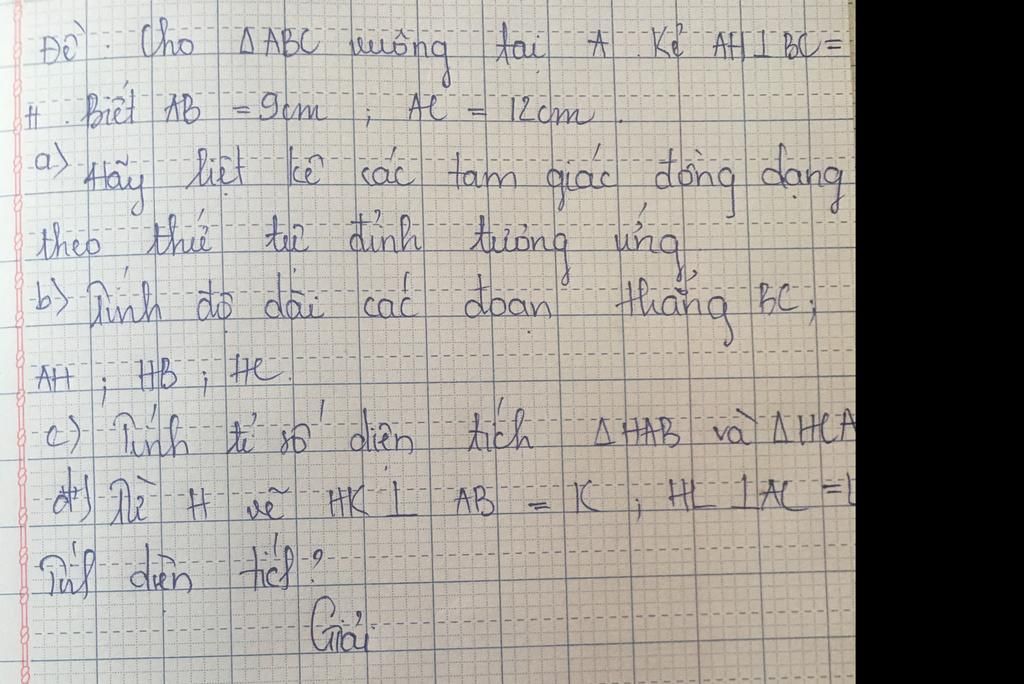 Đề. Cho ΔABC vuông tại A. Kẻ AH ⊥ BC =
H. Biết AB = 9cm ; AC = 12cm.
a) Hãy liệt kê các tam giác đồng dạng
theo thứ tự đỉnh tương ứng
b) Tính độ dài các đoạn thẳng BC;
AH ; HB ; HC.
c) Tính tỉ số diện tích ΔHAB và ΔHCA
d) Từ H vẽ HK ⊥ AB = K ; HL ⊥ AC = L
Tính diện tích?
Giải